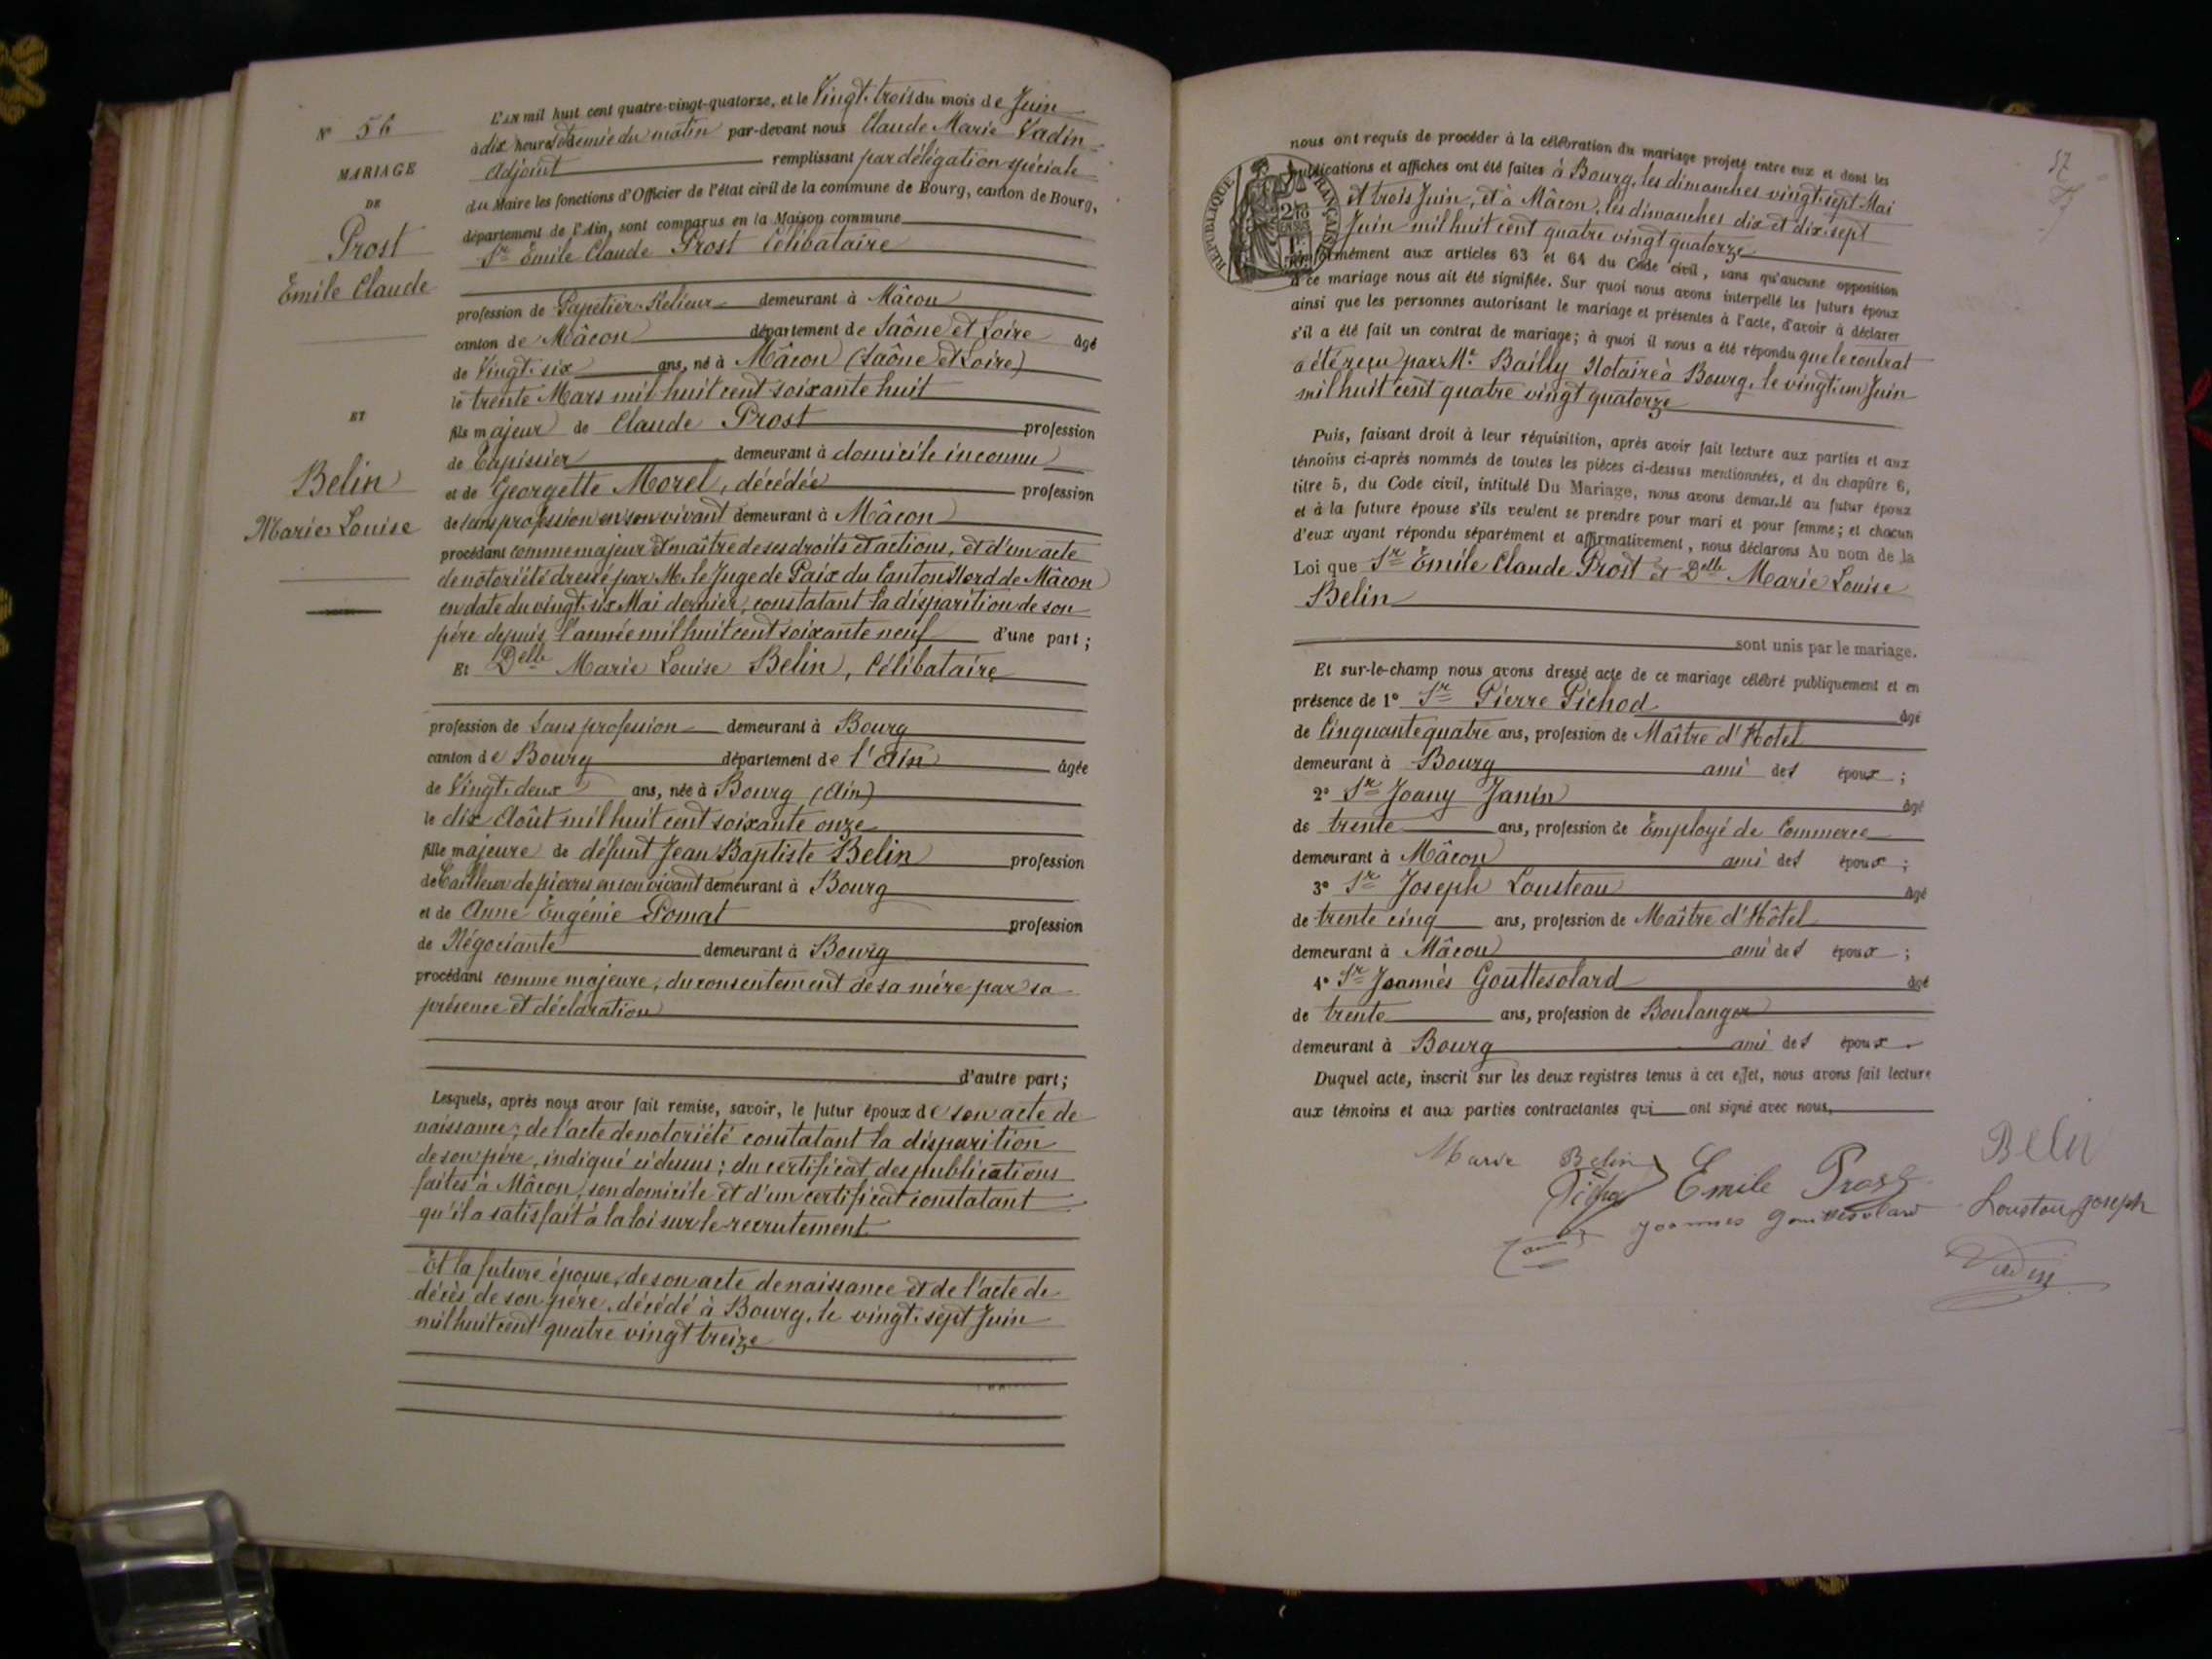 N° 56
MARIAGE
DE
Prost
Emile Claude
ET
Belin
Marie Louise
L'an mil huit cent quatre-vingt-quatorze, et le Vingt-trois du mois de Juin
à dix heures et demie du matin par-devant nous Claude Marie Vadin
Adjoint remplissant par délégation spéciale
du Maire les fonctions d'Officier de l'état civil de la commune de Bourg, canton de Bourg,
département de l'Ain, sont comparus en la Maison commune
Sr Emile Claude Prost Célibataire
profession de Papetier-Relieur demeurant à Mâcon
canton de Mâcon département de Saône et Loire âgé
de Vingt-six ans, né à Mâcon (Saône et Loire)
le trente Mars mil huit cent soixante huit
fils majeur de Claude Prost profession
de Tapissier demeurant à domicile inconnu
et de Georgette Morel, décédée profession
de sans profession en son vivant demeurant à Mâcon
procédant comme majeur et maître de ses droits et actions, et d'un acte
de notoriété dressé par Mr le Juge de Paix du Canton Nord de Mâcon
en date du vingt-six Mai dernier, constatant la disparition de son
père depuis l'année mil huit cent soixante neuf d'une part ;
Et Delle Marie Louise Belin, Célibataire
profession de Sans profession demeurant à Bourg
canton de Bourg département de l'Ain âgée
de Vingt-deux ans, née à Bourg (Ain)
le dix Août mil huit cent soixante onze
fille majeure de défunt Jean Baptiste Belin profession
de Tailleur de pierres en son vivant demeurant à Bourg
et de Anne Eugénie Pomat profession
de Négociante demeurant à Bourg
procédant comme majeure, du consentement de sa mère par sa
présence et déclaration
d'autre part ;
Lesquels, après nous avoir fait remise, savoir, le futur époux de son acte de
naissance ; de l'acte de notoriété constatant la disparition
de son père, indiqué ci dessus ; du certificat des publications
faites à Mâcon, son domicile et d'un certificat constatant
qu'il a satisfait à la loi sur le recrutement
Et la future épouse, de son acte de naissance et de l'acte de
décès de son père, décédé à Bourg, le vingt-sept Juin
mil huit cent quatre vingt treize
57
RÉPUBLIQUE FRANÇAISE
nous ont requis de procéder à la célébration du mariage projeté entre eux et dont les
publications et affiches ont été faites à Bourg, les dimanches vingt-sept Mai
et trois Juin, et à Mâcon, les dimanches dix et dix-sept
Juin mil huit cent quatre vingt quatorze
conformément aux articles 63 et 64 du Code civil, sans qu'aucune opposition
à ce mariage nous ait été signifiée. Sur quoi nous avons interpellé les futurs époux
ainsi que les personnes autorisant le mariage et présentes à l'acte, d'avoir à déclarer
s'il a été fait un contrat de mariage ; à quoi il nous a été répondu que le contrat
a été reçu par Me Bailly Notaire à Bourg, le vingt-un Juin
mil huit cent quatre vingt quatorze
Puis, faisant droit à leur réquisition, après avoir fait lecture aux parties et aux
témoins ci-après nommés de toutes les pièces ci-dessus mentionnées, et du chapitre 6,
titre 5, du Code civil, intitulé Du Mariage, nous avons demandé au futur époux
et à la future épouse s'ils veulent se prendre pour mari et pour femme ; et chacun
d'eux ayant répondu séparément et affirmativement, nous déclarons Au nom de la
Loi que Sr Emile Claude Prost et Delle Marie Louise
Belin
sont unis par le mariage.
Et sur-le-champ nous avons dressé acte de ce mariage célébré publiquement et en
présence de 1° Sr Pierre Pichod âgé
de Cinquante quatre ans, profession de Maître d'Hotel
demeurant à Bourg ami des époux ;
2° Sr Joany Janin âgé
de trente ans, profession de Employé de Commerce
demeurant à Mâcon ami des époux ;
3° Sr Joseph Lousteau âgé
de trente cinq ans, profession de Maître d'Hôtel
demeurant à Mâcon ami des époux ;
4° Sr Joannès Gouttesolard âgé
de trente ans, profession de Boulanger
demeurant à Bourg ami des époux
Duquel acte, inscrit sur les deux registres tenus à cet effet, nous avons fait lecture
aux témoins et aux parties contractantes qui ont signé avec nous,
Marie Belin
Emile Prost
Joannes Gouttesolard
Loustau Joseph
Vadin